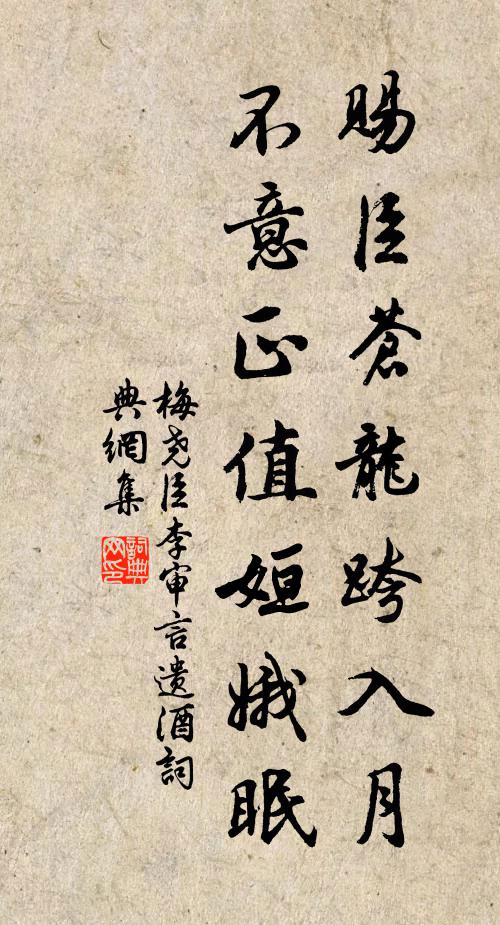 賜臣蒼龍跨入月
不意正值姮娥眠
梅堯臣李审言遗酒詞
典網集
詞典
网印